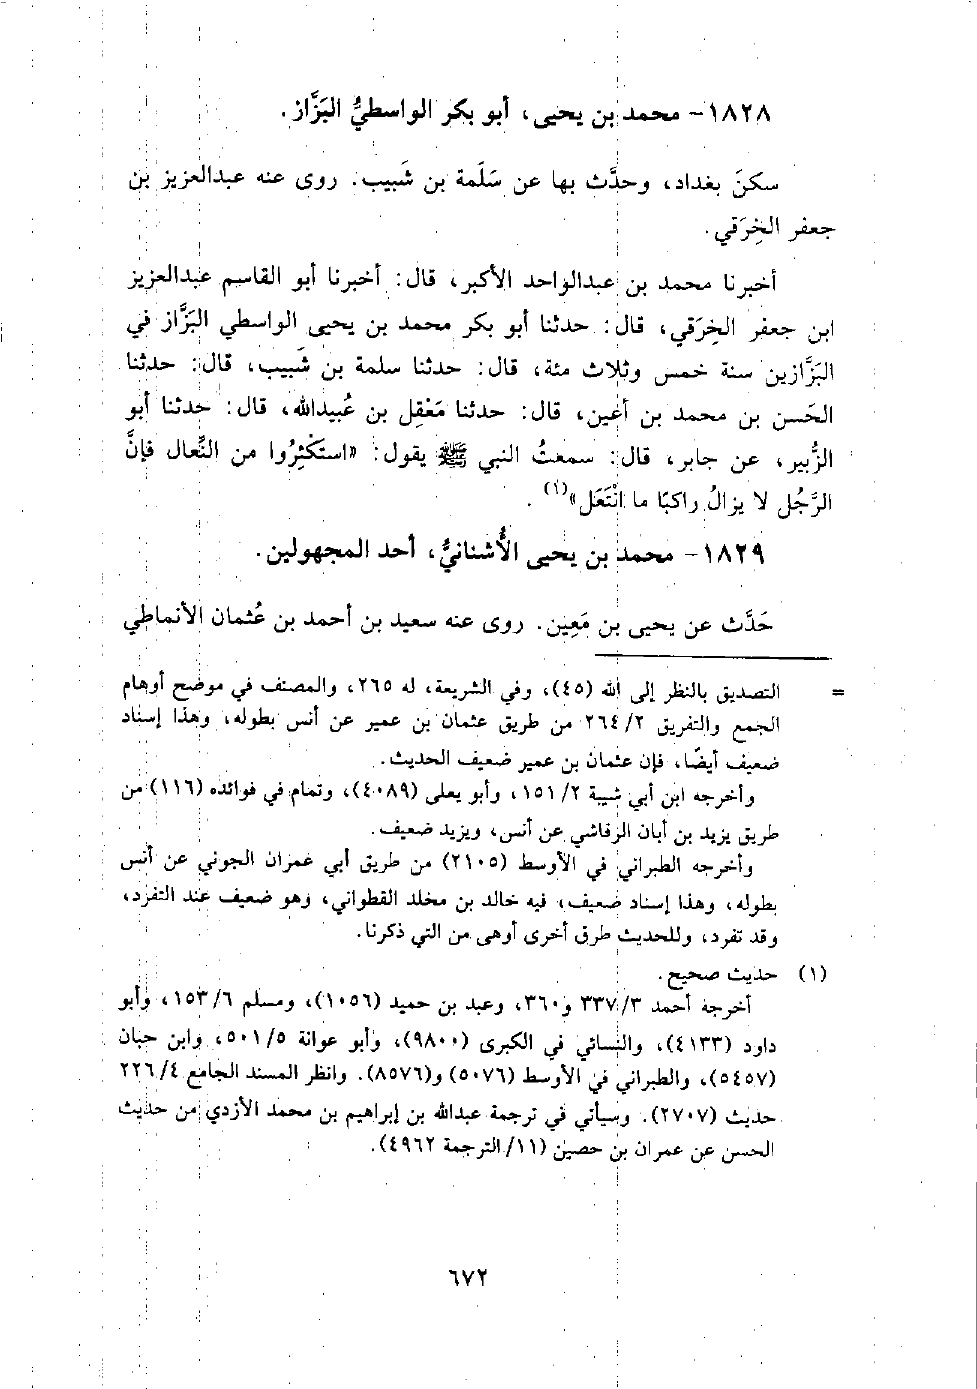 ١٨٢٨- محمد بن يحيى، أبو بكر الواسطيُّ البَزَّاز.
سكنَ بغداد، وحدَّث بها عن سَلَمة بن شَبيب. روى عنه عبدالعزيز بن
جعفر الخِرَقي.
أخبرنا محمد بن عبدالواحد الأكبر، قال: أخبرنا أبو القاسم عبدالعزيز
ابن جعفر الخِرَقي، قال: حدثنا أبو بكر محمد بن يحيى الواسطي البَزَّاز في
البَزَّازين سنة خمس وثلاث مئة، قال: حدثنا سلمة بن شَبيب، قال: حدثنا
الحَسن بن محمد بن أعْين، قال: حدثنا مَعْقِل بن عُبيدالله، قال: حدثنا أبو
الزُّبير، عن جابر، قال: سمعتُ النبي ﷺ يقول: «استكْثِرُوا من النِّعال فإنَّ
الرَّجُل لا يزالُ راكبًا ما انْتَعَل»(١).
١٨٢٩- محمد بن يحيى الأُشنانيُّ، أحد المجهولين.
حَدَّث عن يحيى بن مَعِين. روى عنه سعيد بن أحمد بن عُثمان الأنماطي
= التصديق بالنظر إلى الله (٤٥)، وفي الشريعة، له ٢٦٥، والمصنف في موضح أوهام
الجمع والتفريق ٢/ ٢٦٤ من طريق عثمان بن عمير عن أنس بطوله، وهذا إسناد
ضعيف أيضًا، فإن عثمان بن عمير ضعيف الحديث.
وأخرجه ابن أبي شيبة ٢/ ١٥١، وأبو يعلى (٤٠٨٩)، وتمام في فوائده (١١٦) من
طريق يزيد بن أبان الرقاشي عن أنس، ويزيد ضعيف.
وأخرجه الطبراني في الأوسط (٢١٠٥) من طريق أبي عمران الجوني عن أنس
بطوله، وهذا إسناد ضعيف، فيه خالد بن مخلد القطواني، وهو ضعيف عند التفرد،
وقد تفرد، وللحديث طرق أخرى أوهى من التي ذكرنا.
(١) حديث صحيح.
أخرجه أحمد ٣/ ٣٣٧ و٣٦٠، وعبد بن حميد (١٠٥٦)، ومسلم ٦/ ١٥٣، وأبو
داود (٤١٣٣)، والنسائي في الكبرى (٩٨٠٠)، وأبو عوانة ٥/ ٥٠١، وابن حبان
(٥٤٥٧)، والطبراني في الأوسط (٥٠٧٦) و(٨٥٧٦). وانظر المسند الجامع ٤/ ٢٢٦
حديث (٢٧٠٧). وسيأتي في ترجمة عبدالله بن إبراهيم بن محمد الأزدي من حديث
الحسن عن عمران بن حصين (١١/ الترجمة ٤٩٦٢).
٦٧٢